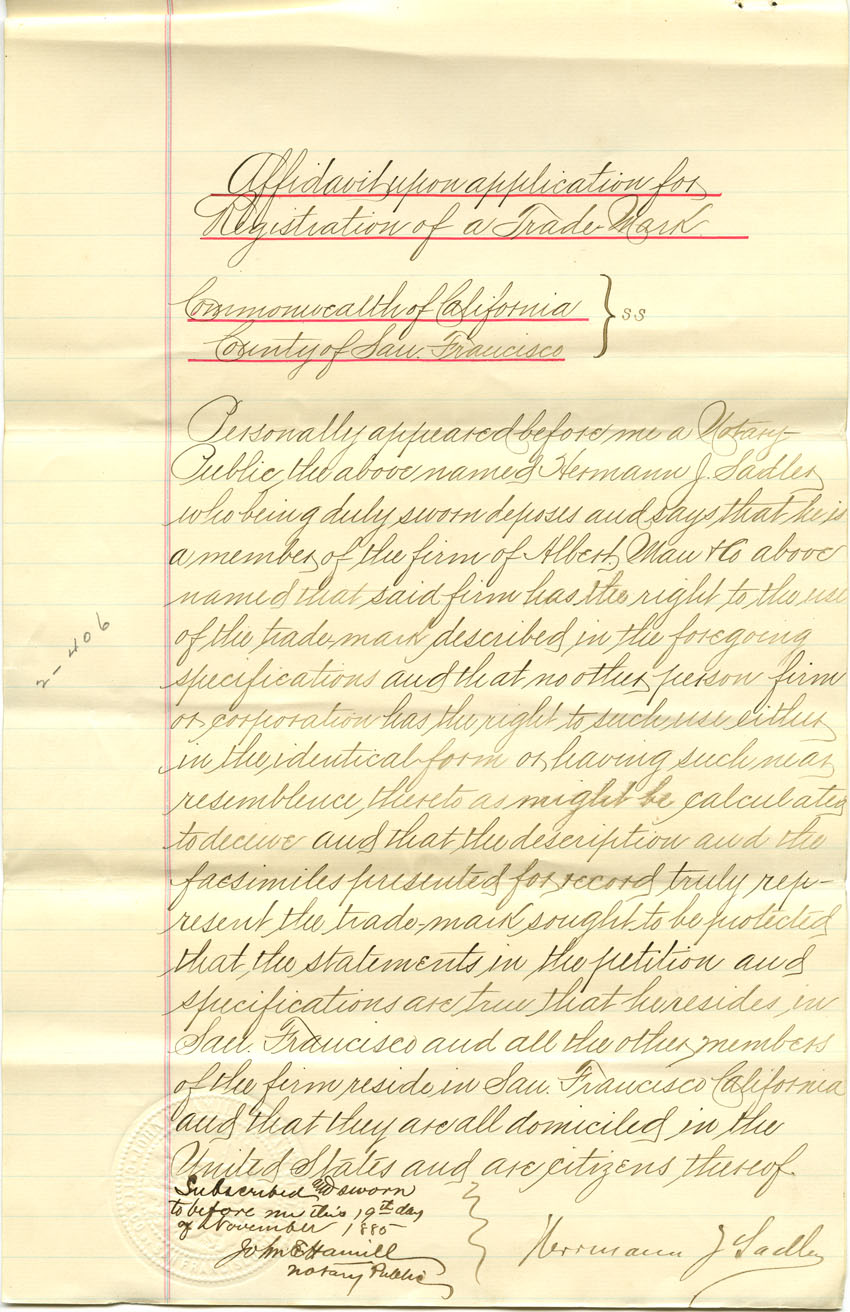 Affidavit upon application for
Registration of a Trade-Mark.
Commonwealth of California
County of San. Francisco
} ss
Personally appeared before me a Notary-
Public, the above named Hermann J. Sadler
who being duly sworn deposes and says, that he is
a member of the firm of Albert, Mau & Co above
named that said firm has the right to the use
of the trade-mark described in the foregoing
specifications and that no other person firm
or corporation has the right to such use either
in the identical form or having such near
resemblence thereto as might be calculated
to deceive and that the description and the
facsimiles presented for record truly rep-
resent the trade-mark sought to be protected
that the statements in the petition and
specifications are true that he resides in
San. Francisco and all the other members
of the firm reside in San. Francisco California
and that they are all domiciled in the
United States and are citizens thereof.
Subscribed and sworn
to before me this 19th day
of November 1885
John E Hamill
Notary Public
Herrmann J Sadler
2-406